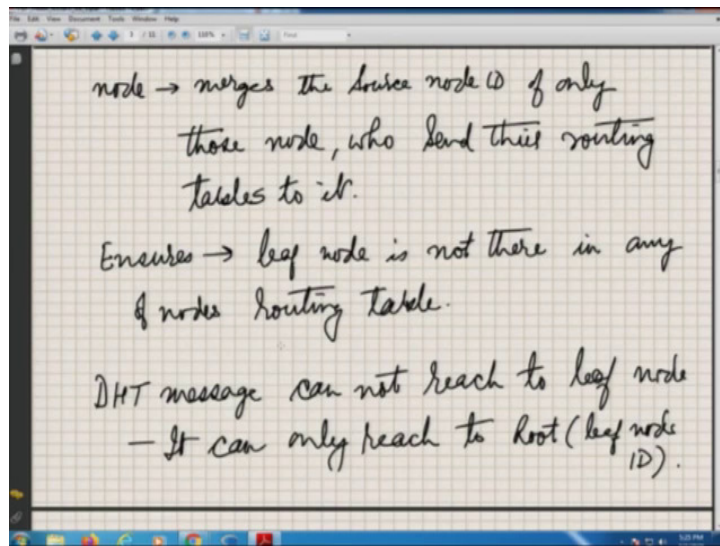 File Edit View Document Tools Window Help
3 / 11
Find
node → merges the source node ID of only
those node, who send their routing
tables to it.
Ensures → leaf node is not there in any
of nodes routing table.
DHT message can not reach to leaf node
– It can only reach to Root (leaf node
ID).
5:25 PM